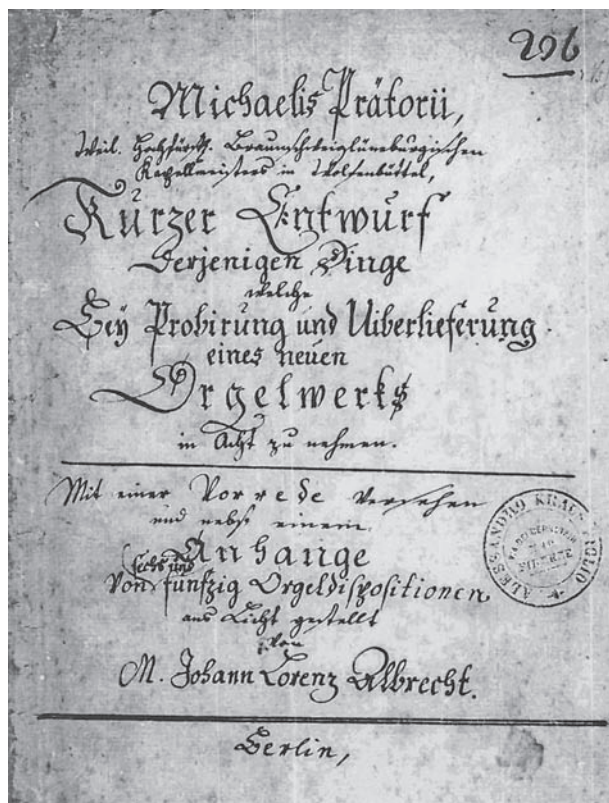 296
Michaelis Prätorii,
Weil. Hochfürstl. Braunschweiglüneburgischen
Kapellmeisters in Wolfenbüttel,
Kurzer Entwurf
derjenigen Dinge
welche
Bey Probirung und Uiberlieferung
eines neuen
Orgelwerks
in Acht zu nehmen.
Mit einer Vorrede versehen
und nebst einem
Anhange
sechs und
von funfzig Orgeldispositionen
ans Licht gestellt
von
M. Johann Lorenz Albrecht.
Berlin,
ALESSANDRO KRAUS FIGLIO
FIRENZE